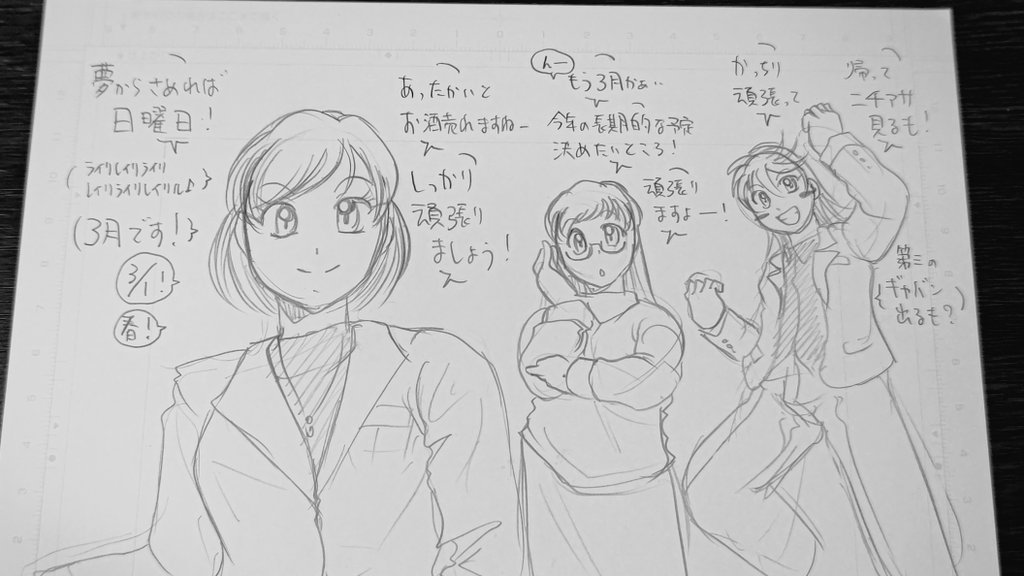 夢からさめれば
日曜日！
(ライリレイリライリ
レイリライリレイリル♪)
(3月です！)
3/1！
春！
あったかいと
お酒売れますねー
しっかり
頑張り
ましょう！
んー
もう3月かぁ…
今年の長期的な予定
決めたいところ！
頑張り
ますよー！
かっちり
頑張って
帰って
ニチアサ
見るも！
第三の
(ギャバン
出るも？)